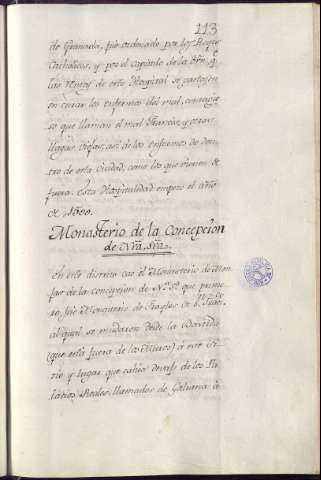 113
de Granada, fue ordenado por los Reyes
Catholicos, y por el capitulo de la
las rentas de este Hospital se gastasen
en curar los enfermos del mal, contagio
so que llaman el mal Frances, y otras
llagas viejas, asi de los enfermos de den
tro de esta Ciudad, como los que vienen de
fuera. Esta Hospitalidad empezo el año
de 1600.
Monasterio de la Concepcion
de Nra. Sra.
En este distrito cae el Monasterio de Mon
jas de la concepcion de Nª. Sª. que prime
ro fue Monasterio de Frayles de S. Fran.co
al qual se mudaron desde la
(que esta fuera de los Muros) a este si
tio y lugar que cahia devajo de los Pa
lacios Reales llamados de Galiana à